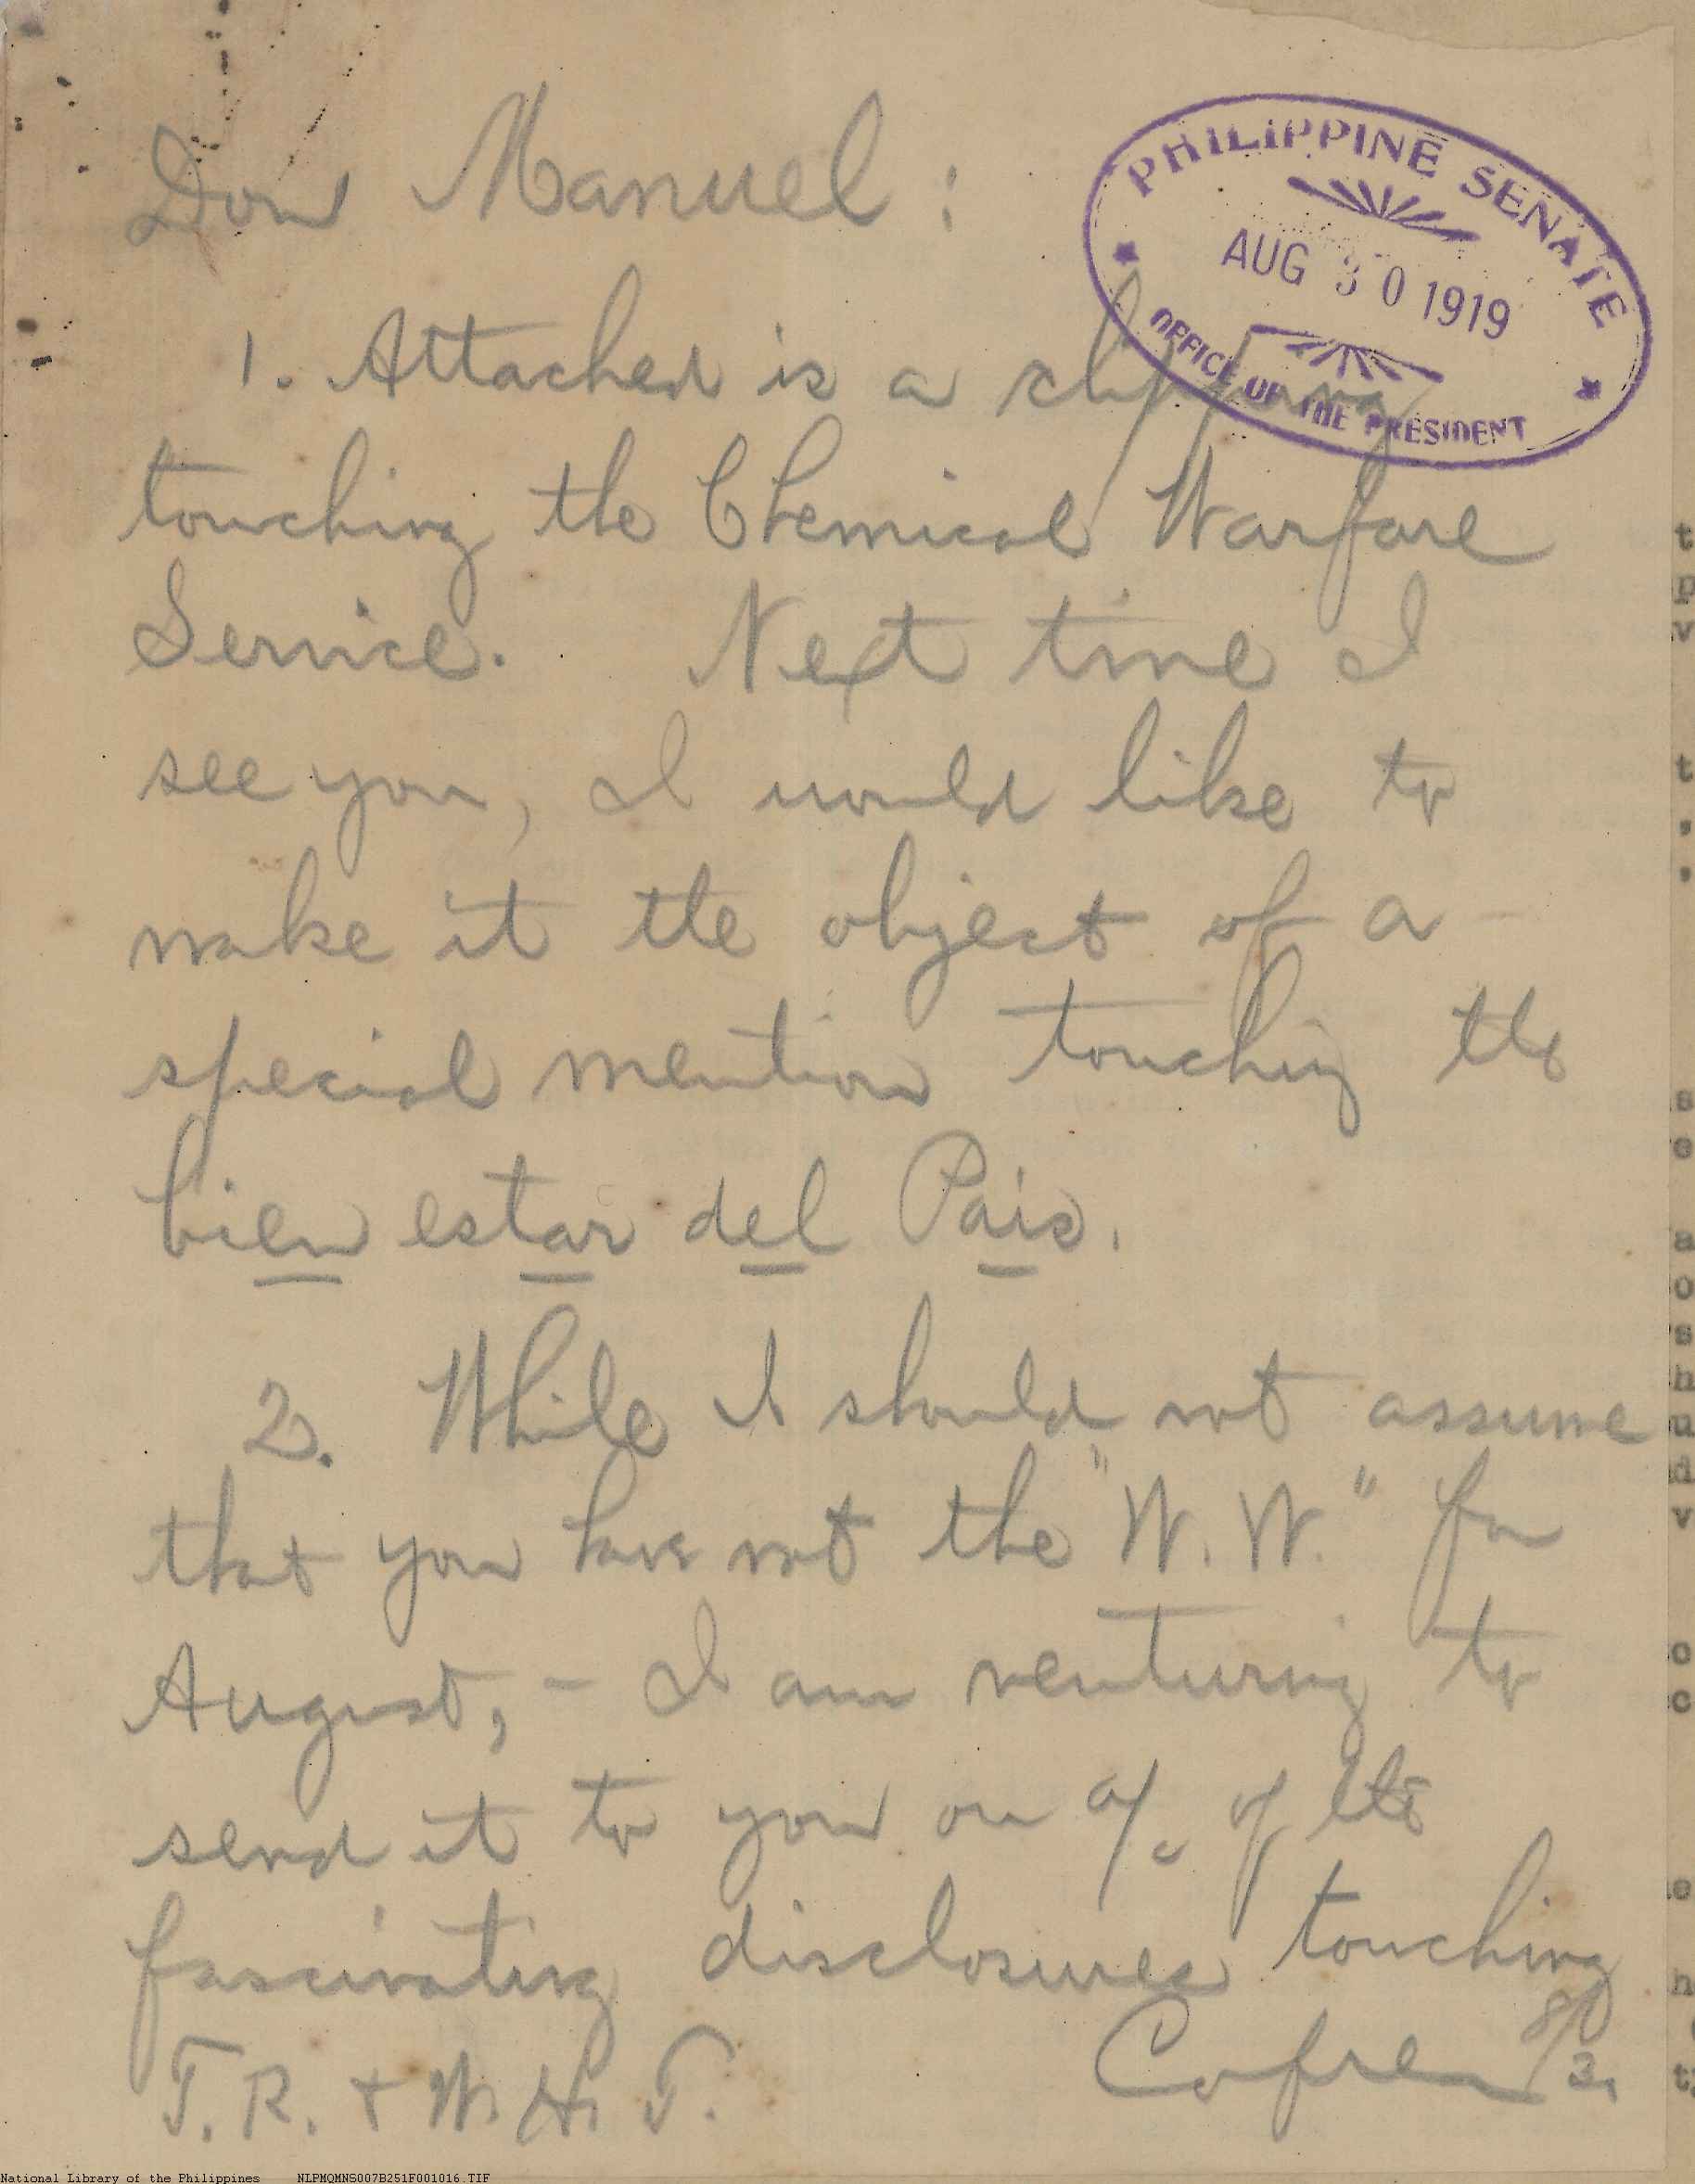 Don Manuel:
PHILIPPINE SENATE
AUG 30 1919
OFFICE OF THE PRESIDENT
1. Attached is a clipping
touching the Chemical Warfare
Service. Next time I
see you, I would like to
make it the object of a
special mention touching the
bien estar del Pais.
2. While I should not assume
that you have not the "W.W." for
August, - I am venturing to
send it to you on a/c of its
fascinating disclosures touching
T.R. + W.H.T.
8/3
National Library of the Philippines NLPMQMNS007B251F001016.TIF